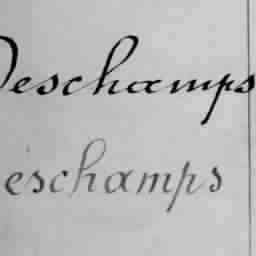 Deschamps
eschamps